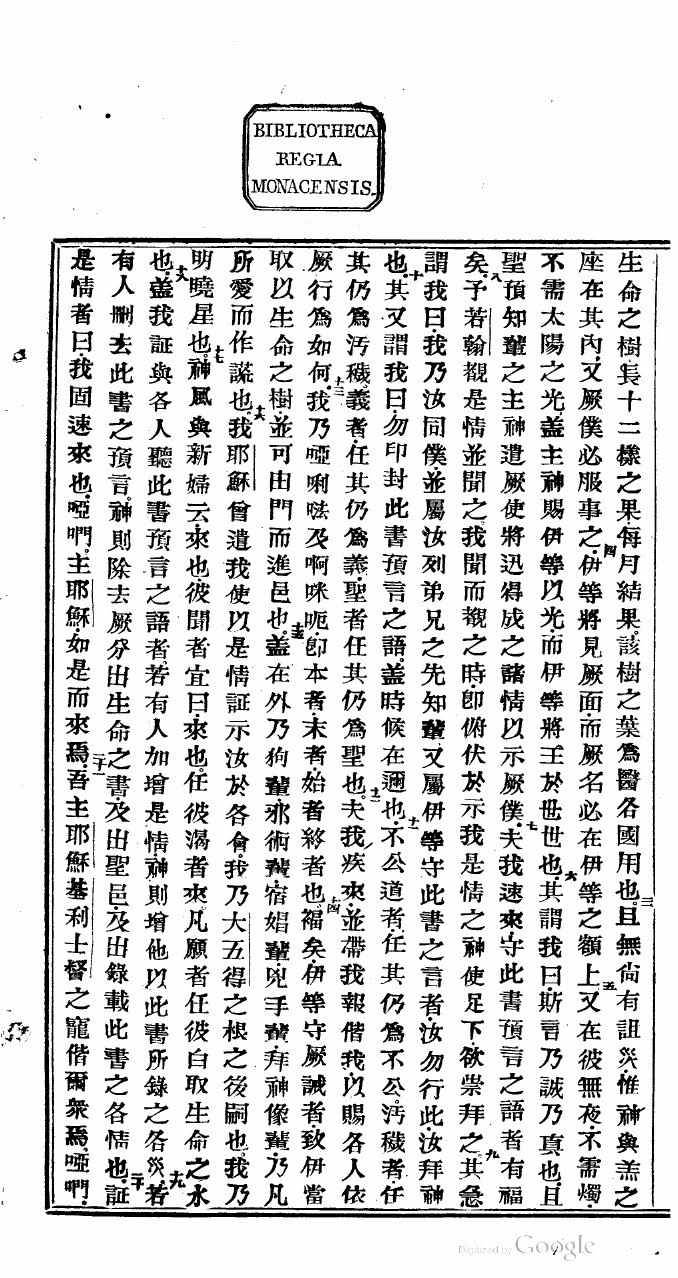 BIBLIOTHECA
REGIA
MONACENSIS.
生命之樹長十二樣之果每月結果。該樹之葉爲醫各國用也。三且無尙有詛災。惟神與羔之
座在其內。又厥僕必服事之。四伊等將見厥面。而厥名必在伊等之額上。五又在彼無夜。不需燭。
不需太陽之光。蓋主神賜伊等以光。而伊等將王於世世也。六其謂我曰。斯言乃誠乃眞也。且
聖預知輩之主神遣厥使將迅得成之諸情以示厥僕。七夫我速來。守此書預言之語者有福
矣。八予若翰覩是情並聞之。我聞而覩之時。卽俯伏於示我是情之神使足下。欲崇拜之。九其急
謂我曰。我乃汝同僕。並屬汝列弟兄之先知輩。又屬伊等守此書之言者。汝勿行此。汝拜神
也。十其又謂我曰。勿印封此書預言之語。蓋時候在邇也。十一不公道者。任其仍爲不公。汚穢者。任
其仍爲汚穢。義者。任其仍爲義。聖者任其仍爲聖也。十二夫我疾來。並帶我報偕我。以賜各人依
厥行爲如何。十三我乃啞唎㖠及啊咪呃。卽本者末者。始者終者也。十四福矣。伊等守厥誡者。致伊當
取以生命之樹。並可由門而進邑也。十五蓋在外乃狗輩。邪術輩。宿娼輩。兇手輩。拜神像輩。乃凡
所愛而作謊也。十六我耶穌曾遣我使以是情証示汝於各會。我乃大五得之根之後嗣也。我乃
明曉星也。十七神風與新婦云。來也。彼聞者宜曰。來也。任彼渴者來。凡願者任彼白取生命之水
也。十八蓋我証與各人聽此書預言之語者。若有人加增是情。神則增他以此書所錄之各災。十九若
有人刪去此書之預言。神則除去厥分出生命之書。及出聖邑。及出錄載此書之各情也。二十証
是情者曰。我固速來也。啞們。主耶穌。如是而來焉。二十一吾主耶穌基利士督之寵偕爾衆焉。啞們。
Digitized by Google